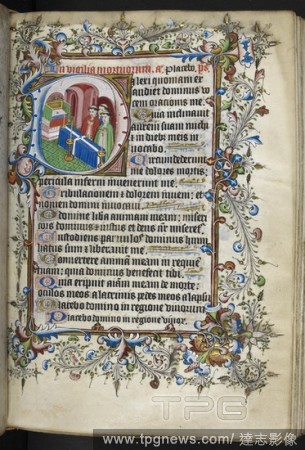 In vigilia mortuorum. a. Placebo. ps.
Dilexi quoniam ex
audiet dominus vo
cem orationis me
Quia inclinauit
aurem suam michi
et in diebus meis in
uocabo. Circumdederunt
me dolores mortis:
pericula inferni inuenerunt me.
Tribulacionem et dolorem inueni: et
nomen domini inuocaui.
O domine libera animam meam: miseri
cors dominus et iustus et deus nr miseret.
Custodiens paruulos dominus humi
liatus sum et liberauit me.
Conuertere anima meam in requiem
tuam: quia dominus benefecit tibi.
Quia eripuit aiam meam de morte:
oculos meos a lacrimis pedes meos a lapsu
Placebo domino in regione viuorum
Placebo domino in regione viuor.
TPG
www.tpgnews.com/ 達志影像